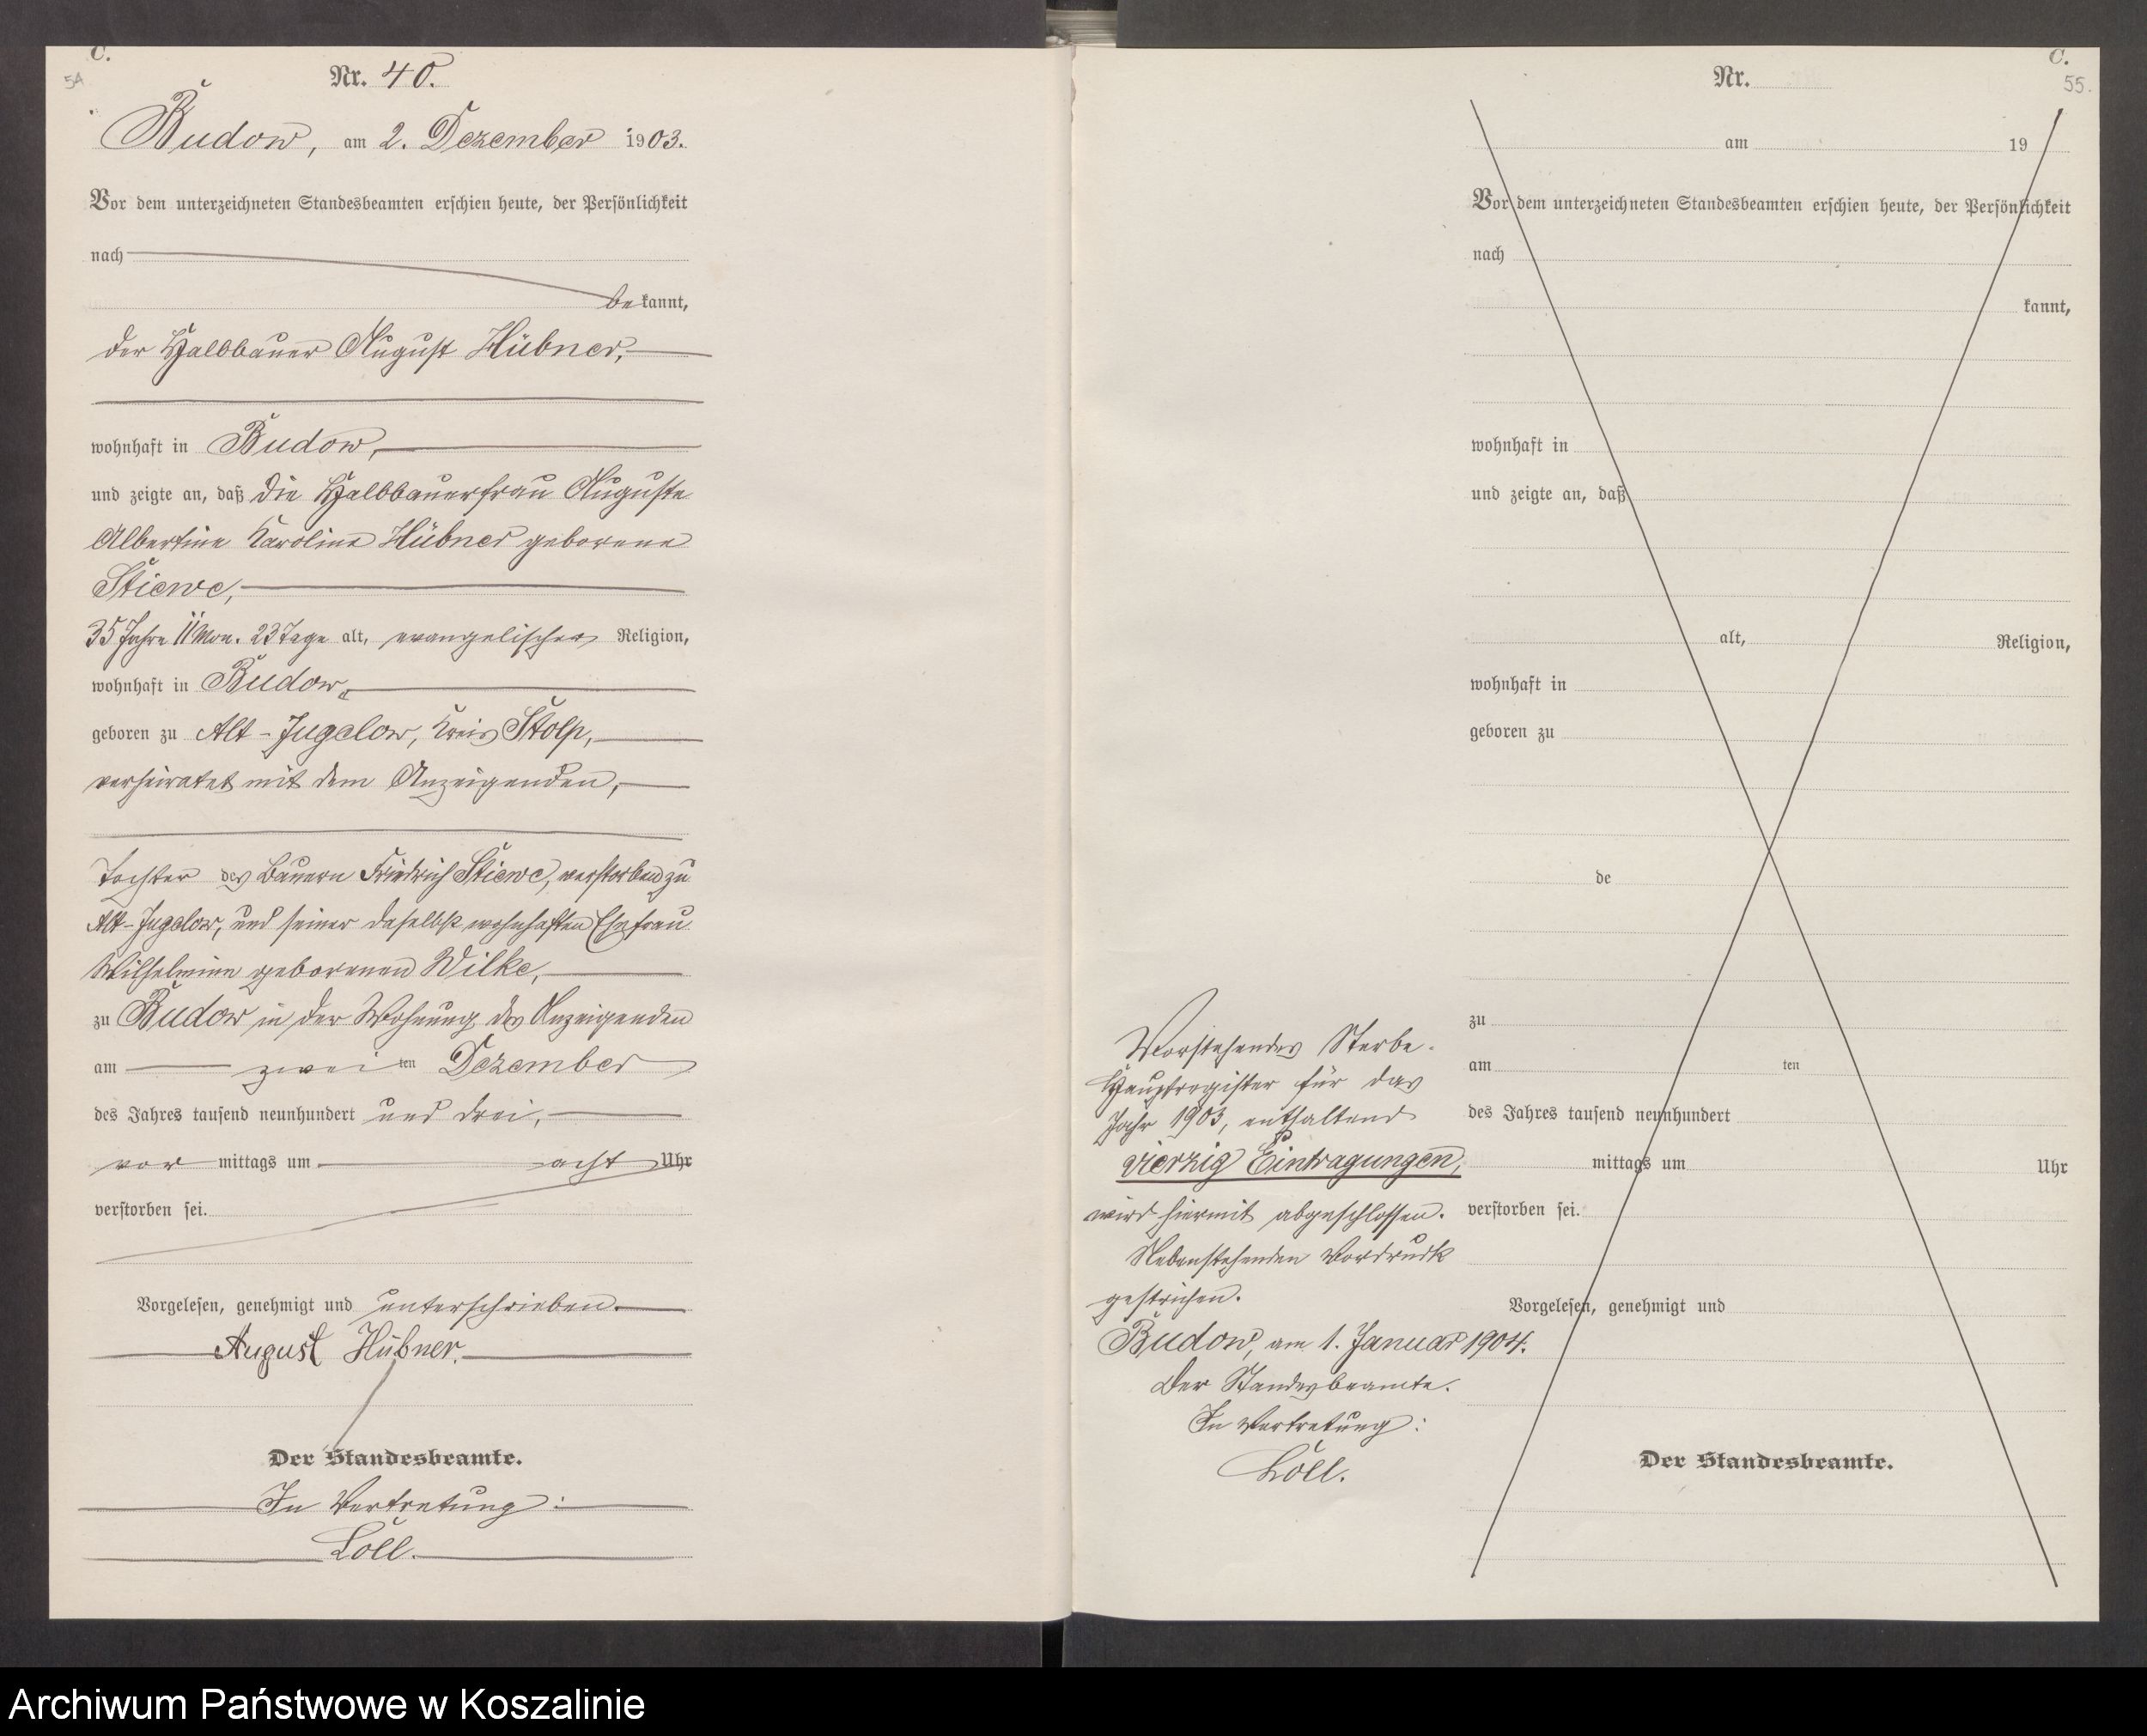 C.
54
Nr. 40.
Budow, am 2. Dezember 1903.
Vor dem unterzeichneten Standesbeamten erschien heute, der Persönlichkeit
nach
bekannt,
der Halbbauer August Hübner,
wohnhaft in Budow,
und zeigte an, daß die Halbbauerfrau Auguste
Albertine Karoline Hübner geborene
Stiewe,
35 Jahre 11 Mon. 23 Tage alt, evangelischer Religion,
wohnhaft in Budow,
geboren zu Alt-Jugelow, Kreis Stolp,
verheiratet mit dem Anzeigenden,
Tochter des Bauern Friedrich Stiewe, verstorben zu
Alt-Jugelow, und seiner daselbst wohnhaften Ehefrau
Wilhelmine geborenen Wilke,
zu Budow in der Wohnung des Anzeigenden
am zweiten Dezember
des Jahres tausend neunhundert und drei,
vor mittags um acht Uhr
verstorben sei.
Vorgelesen, genehmigt und unterschrieben.
August Hübner.
Der Standesbeamte.
In Vertretung:
Löll.
C.
55.
Nr.
am 19
Vor dem unterzeichneten Standesbeamten erschien heute, der Persönlichkeit
nach
kannt,
wohnhaft in
und zeigte an, daß
alt, Religion,
wohnhaft in
geboren zu
de
zu
am ten
des Jahres tausend neunhundert
mittags um Uhr
verstorben sei.
Vorgelesen, genehmigt und
Der Standesbeamte.
Vorstehendes Sterbe-
Hauptregister für das
Jahr 1903, enthaltend
vierzig Eintragungen,
wird hiermit abgeschlossen.
Nebenstehenden Vordruck
gestrichen.
Budow, am 1. Januar 1904.
Der Standesbeamte.
In Vertretung:
Löll.
Archiwum Państwowe w Koszalinie